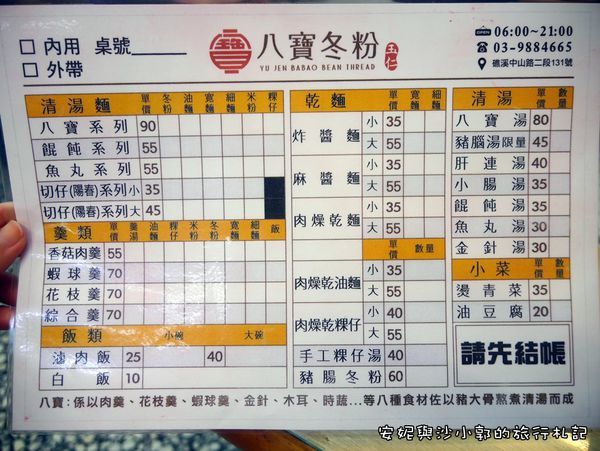 □ 內用 桌號
□ 外帶
八寶冬粉 玉仁
YU JEN BABAO BEAN THREAD
OPEN 06:00~21:00
03-9884665
礁溪中山路二段131號
清湯麵 單價 冬粉 油麵 寬麵 細麵 米粉 粿仔
八寶系列 90
餛飩系列 55
魚丸系列 55
切仔(陽春)系列 小 35
切仔(陽春)系列 大 45
羹類 單價 羹湯 油麵 粿仔 米粉 冬粉 寬麵 細麵 飯
香菇肉羹 55
蝦球羹 70
花枝羹 70
綜合羹 70
飯類 小碗 大碗
滷肉飯 25 40
白飯 10
乾麵 單價 油麵 寬麵 細麵 米粉
炸醬麵 小 35
大 55
麻醬麵 小 35
大 55
肉燥乾麵 小 35
大 55
單價 數量
肉燥乾油麵 小 35
大 55
肉燥乾粿仔 小 40
大 55
手工粿仔湯 40
豬腸冬粉 60
清湯 單價 數量
八寶湯 80
豬腦湯限量 45
肝連湯 40
小腸湯 35
餛飩湯 35
魚丸湯 30
金針湯 30
小菜 單價 數量
燙青菜 35
油豆腐 20
請先結帳
八寶:係以肉羹、花枝羹、蝦球羹、金針、木耳、時蔬...等八種食材佐以豬大骨熬煮清湯而成
安妮與沙小郭的旅行札記